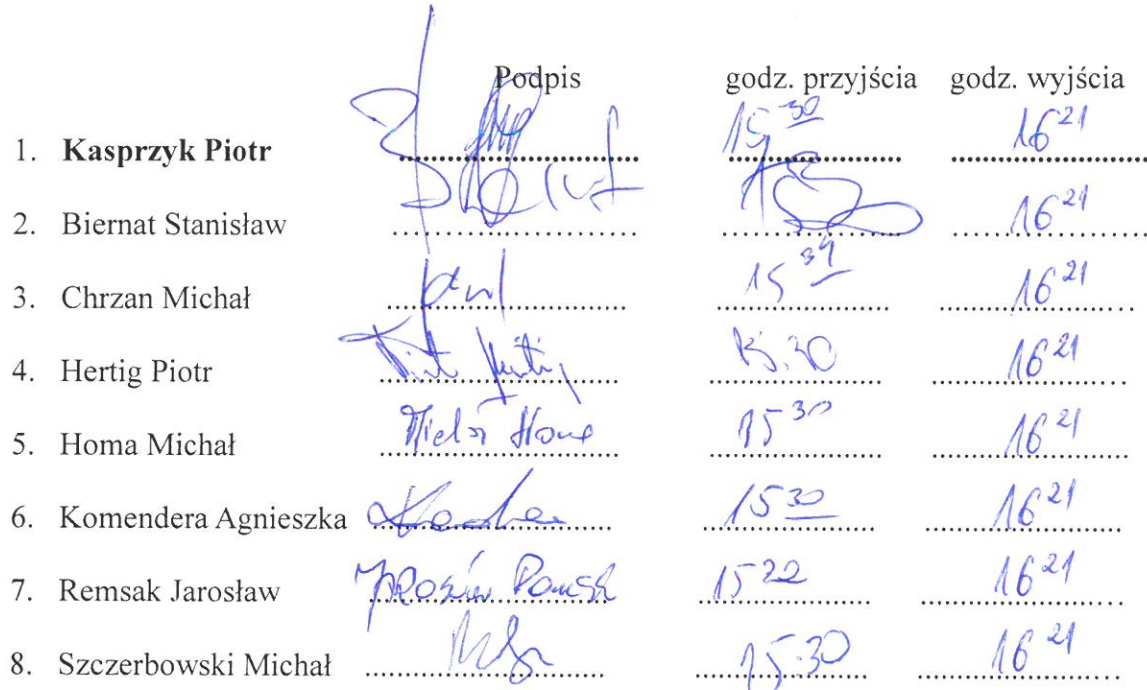 Podpis godz. przyjścia godz. wyjścia
1. Kasprzyk Piotr 15 30 16 21
2. Biernat Stanisław 16 21
3. Chrzan Michał 15 34 16 21
4. Hertig Piotr Piotr Hertig 15.30 16 21
5. Homa Michał Michał Homa 15 30 16 21
6. Komendera Agnieszka 15 30 16 21
7. Remsak Jarosław Jarosław Remsak 15 22 16 21
8. Szczerbowski Michał 15.30 16 21